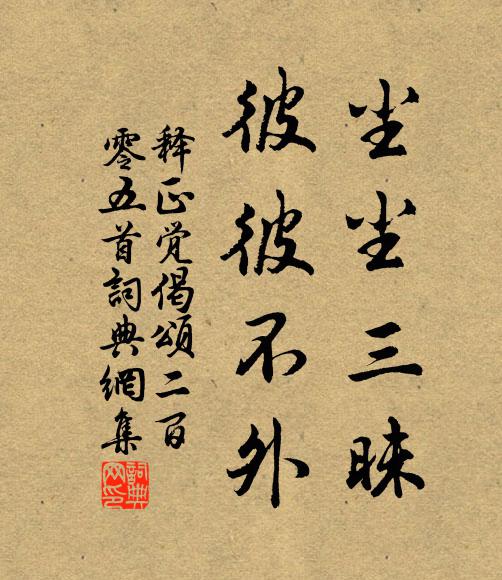 尘尘三昧
彼彼不外
释正觉偈頌二百
零五首詞典網集
詞典网印